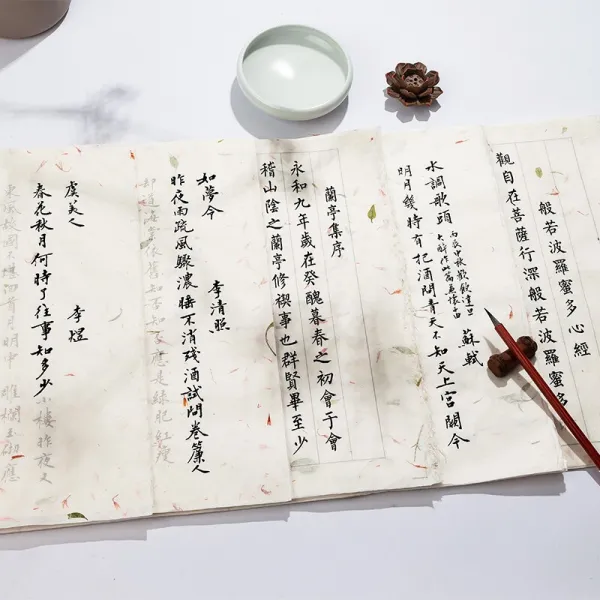 般若波羅蜜多心經
觀自在菩薩行深般若波羅蜜多
水調歌頭
丙辰中秋歡飲達旦
大醉作此篇兼懷子由
蘇軾
明月幾時有把酒問青天不知天上宮闕今
蘭亭集序
永和九年歲在癸醜暮春之初會于會
稽山陰之蘭亭修禊事也群賢畢至少
如夢令 李清照
昨夜雨疏風驟濃睡不消殘酒試問卷簾人
却道海棠依舊知否知否應是綠肥紅瘦
虞美人 李煜
春花秋月何時了往事知多少小樓昨夜又
東風故國不堪回首月明中 雕欄玉砌應